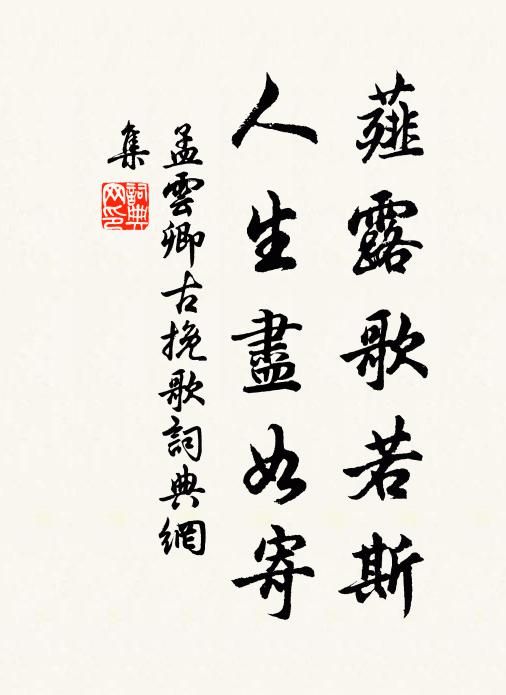 薤露歌若斯
人生盡如寄
孟雲卿古挽歌詞典網
集
詞典網印